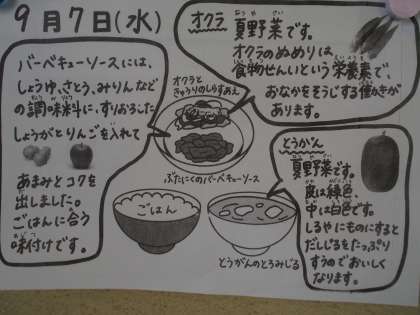 9月7日(水)
バーベキューソースには、
しょうゆ、さとう、みりんなど
の調味料に、すりおろした
しょうがとりんごを入れて
あまみとコクを
出しました。
ごはんに合う
味付けです。
オクラ 夏野菜です。
オクラのぬめりは
食物せんいという栄養素で、
おなかをそうじする働きが
あります。
オクラと
きゅうりのしらすあえ
ぶたにくのバーベキューソース
ごはん
とうがんのとろみじる
とうがん
夏野菜です。
皮は緑色、
中は白色です。
しるやにものにすると
だしじるをたっぷり
すうのでおいしく
なります。